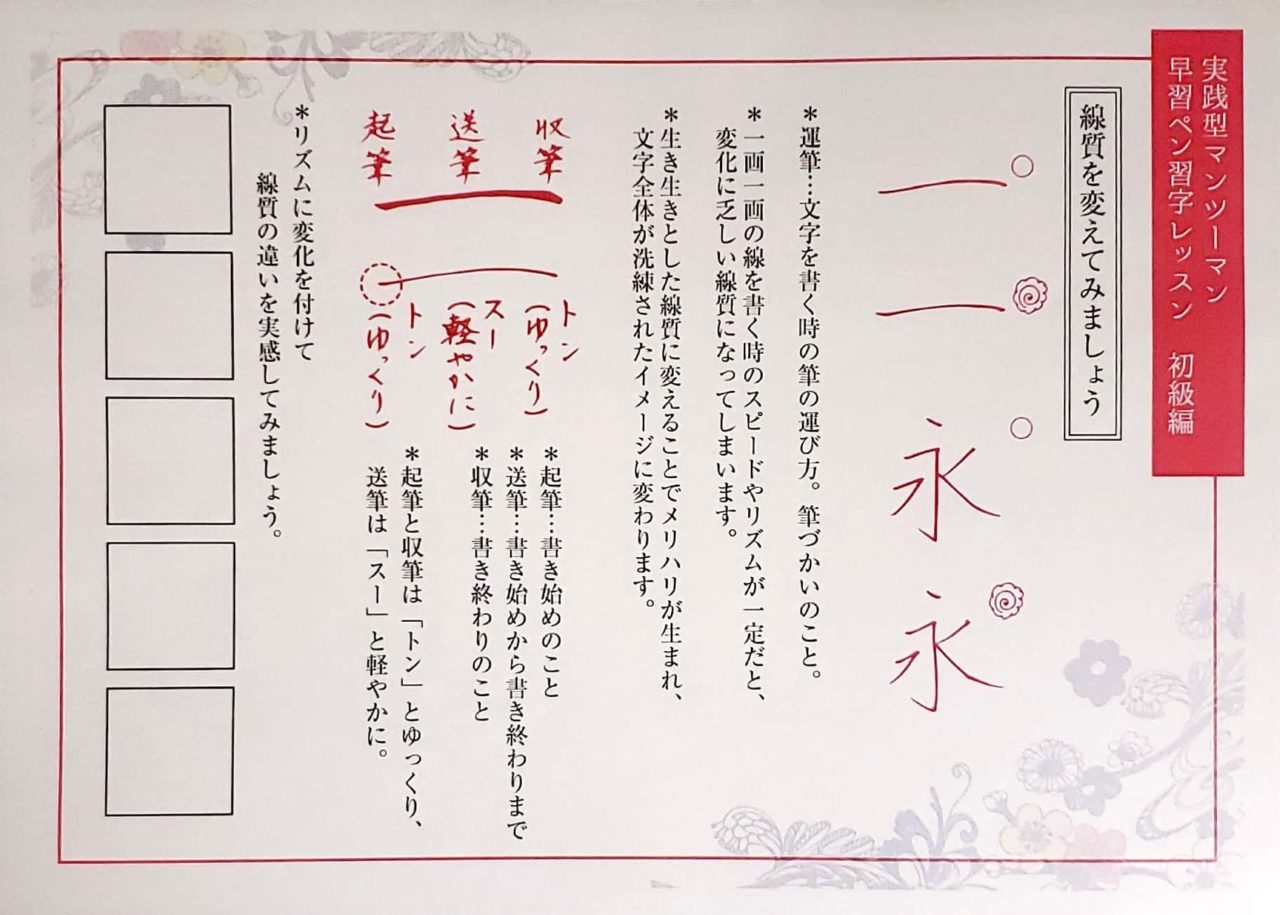 実践型マンツーマン
早習ペン習字レッスン 初級編
線質を変えてみましょう
一
一
永
永
＊運筆…文字を書く時の筆の運び方。筆づかいのこと。
＊一画一画の線を書く時のスピードやリズムが一定だと、
変化に乏しい線質になってしまいます。
＊生き生きとした線質に変えることでメリハリが生まれ、
文字全体が洗練されたイメージに変わります。
収筆
送筆
起筆
トン
(ゆっくり)
スー
(軽やかに)
トン
(ゆっくり)
＊起筆…書き始めのこと
＊送筆…書き始めから書き終わりまで
＊収筆…書き終わりのこと
＊起筆と収筆は「トン」とゆっくり、
送筆は「スー」と軽やかに。
＊リズムに変化を付けて
線質の違いを実感してみましょう。